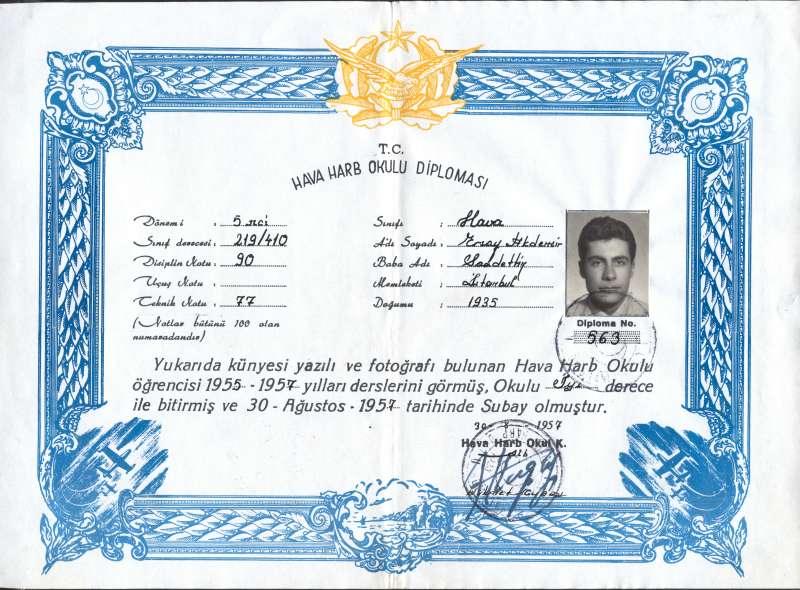 T.C.
HAVA HARB OKULU DİPLOMASI
Dönemi : 5 nci
Sınıf derecesi : 219/410
Disiplin Notu : 90
Uçuş Notu :
Teknik Notu : 77
(Notlar bütünü 100 olan
numaradandır)
Sınıfı : Hava
Aile Soyadı : Ersoy Akdemir
Baba Adı : Saadettin
Memleketi : İstanbul
Doğumu : 1935
Diploma No.
563
Yukarıda künyesi yazılı ve fotoğrafı bulunan Hava Harb Okulu
öğrencisi 1955 - 1957 yılları derslerini görmüş, Okulu İyi derece
ile bitirmiş ve 30 - Ağustos - 1957 tarihinde Subay olmuştur.
30 - 8 - 1957
Hava Harb Okul K.